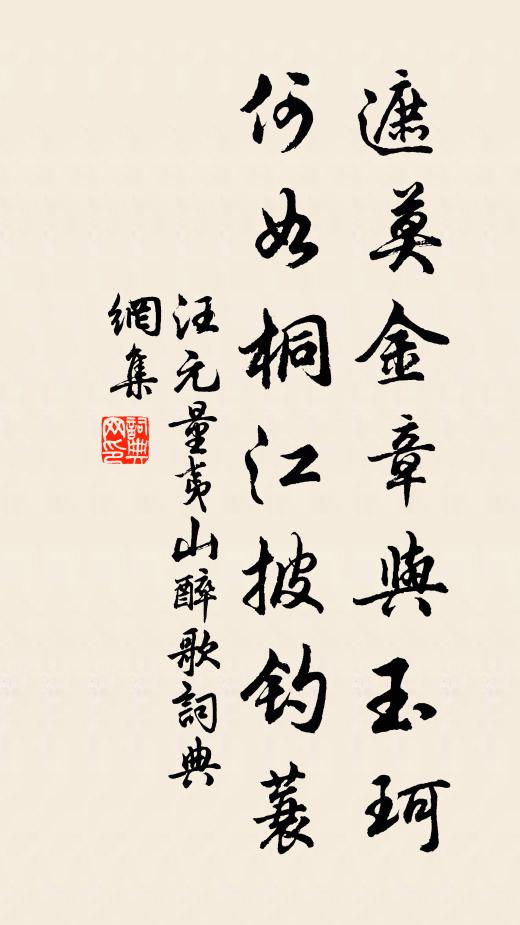 遮莫金章與玉珂
何如桐江披釣蓑
汪元量夷山醉歌詞典
網集
詞典
网印